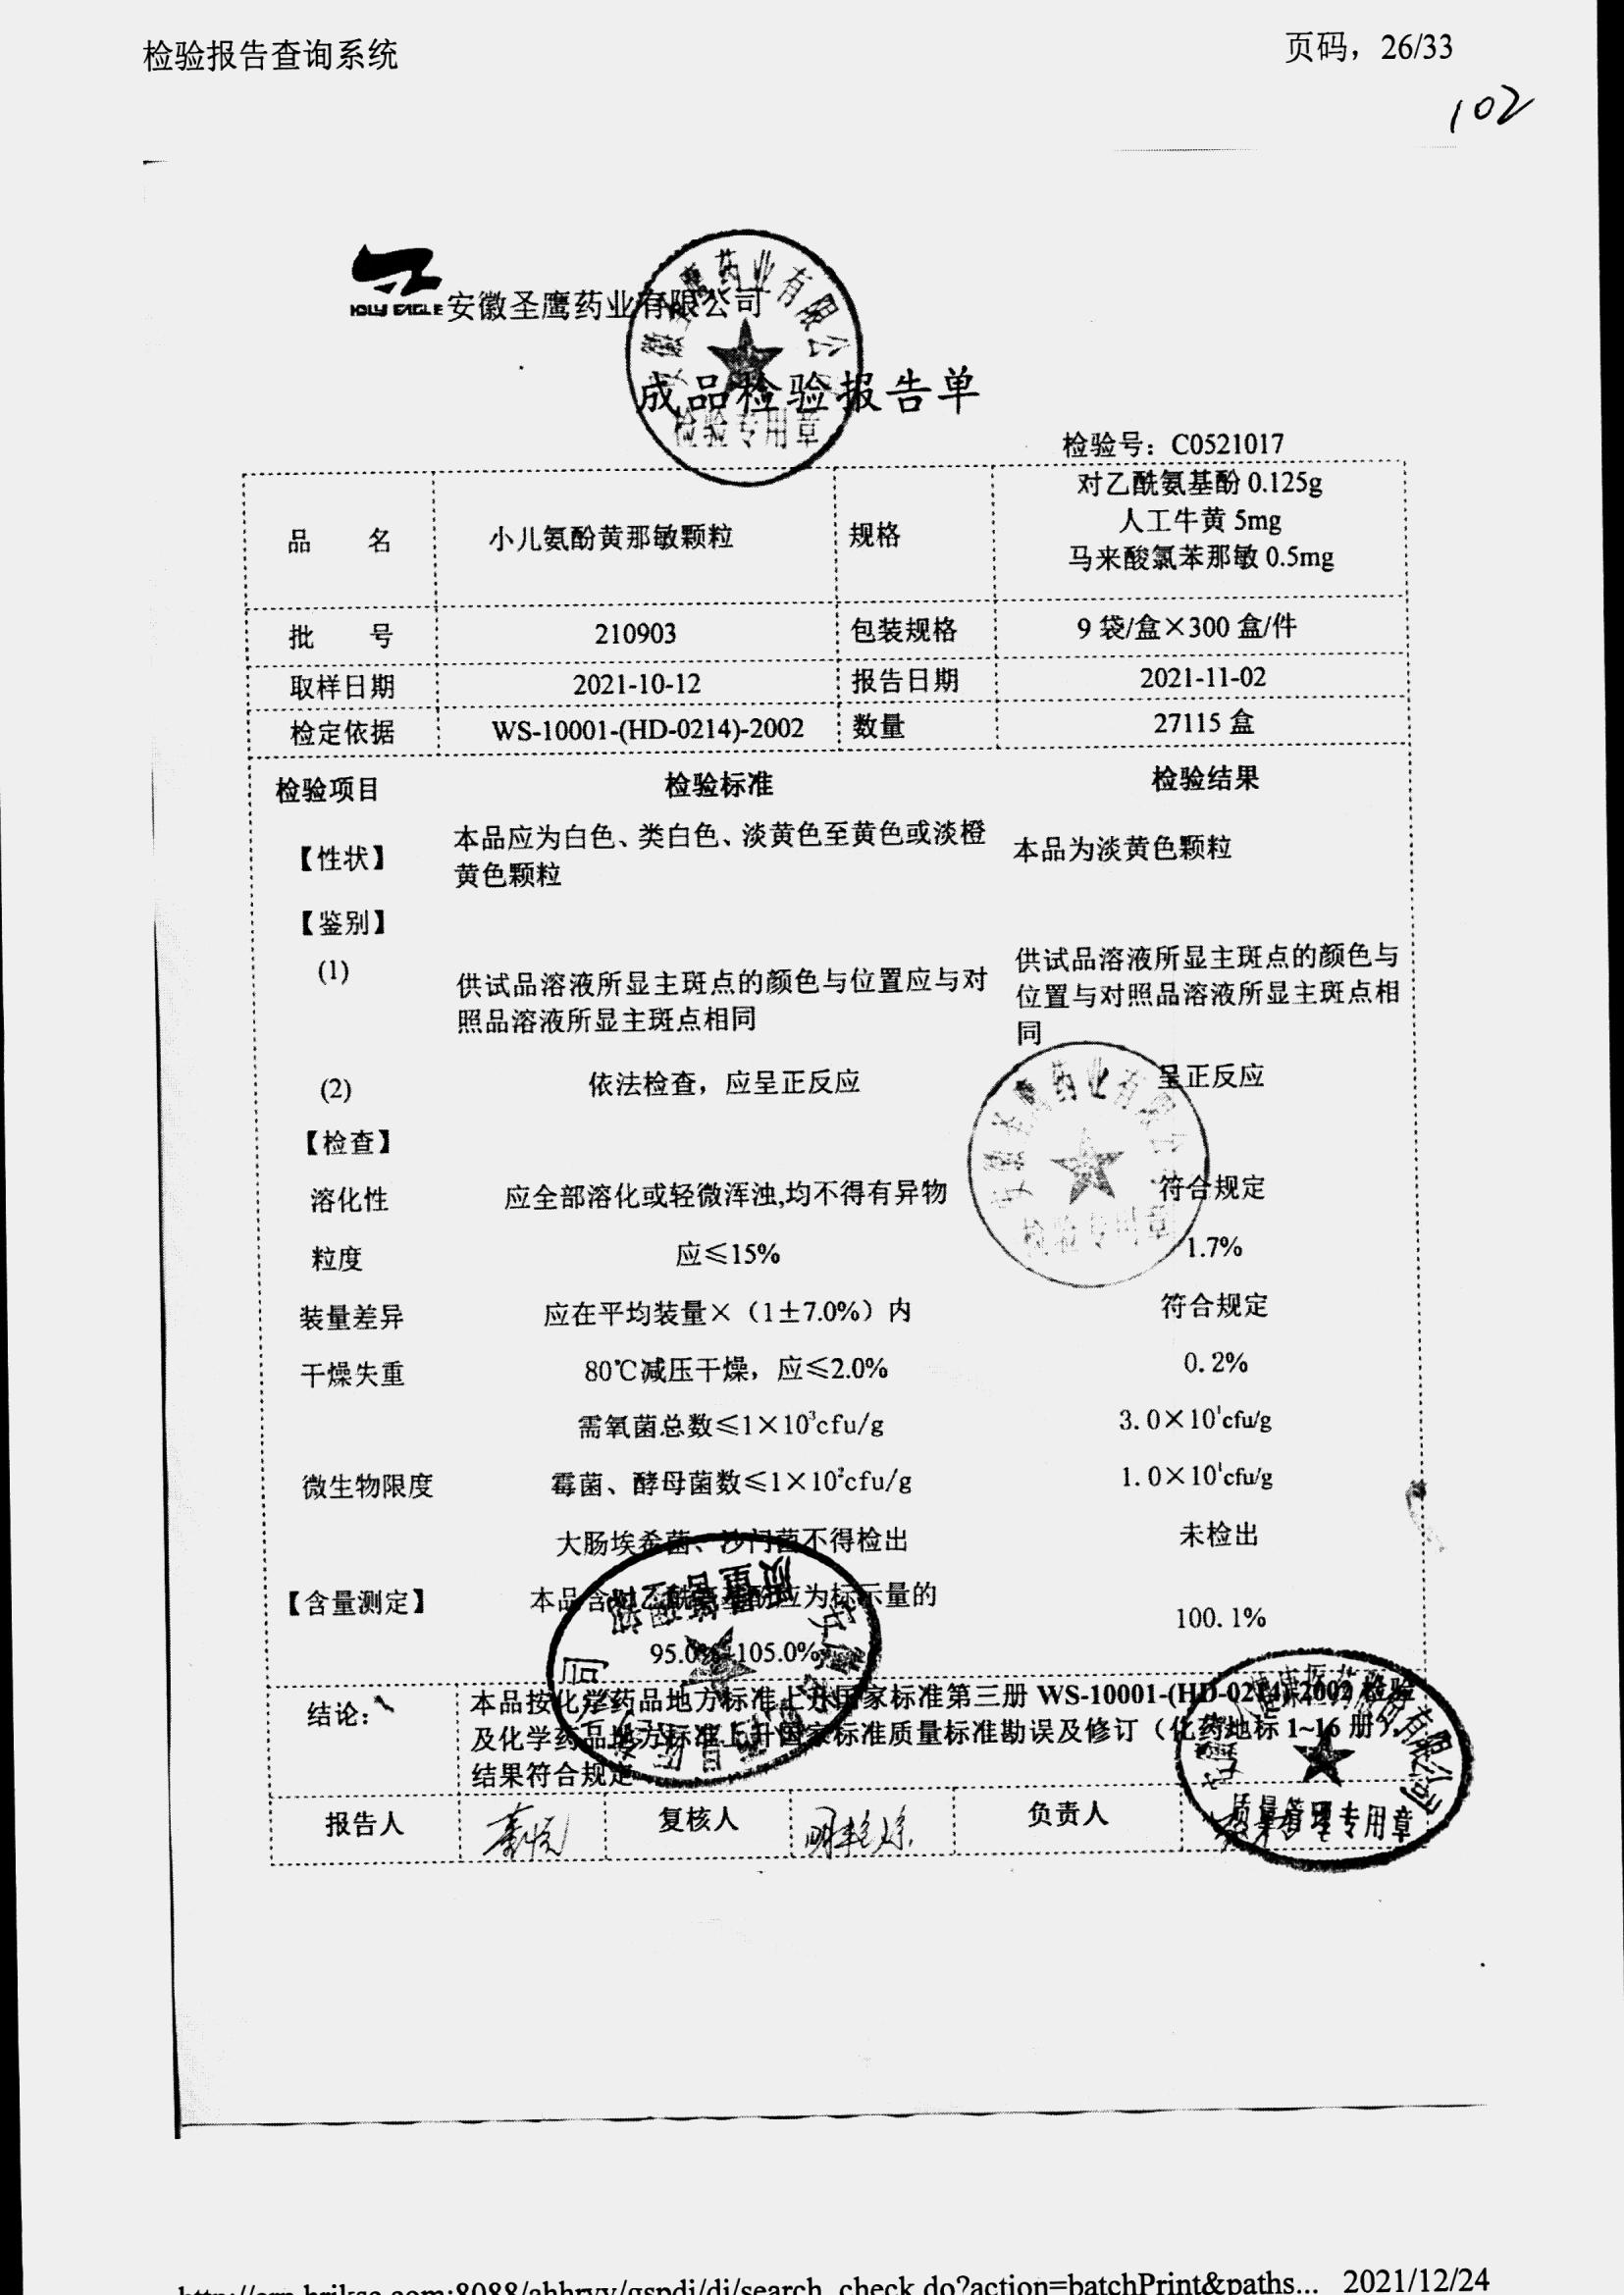 检验报告查询系统
页码，26/33
102
HOLY EAGLE 安徽圣鹰药业有限公司
成品检验报告单
检验专用章
检验号：C0521017
品 名 小儿氨酚黄那敏颗粒 规格 对乙酰氨基酚 0.125g
人工牛黄 5mg
马来酸氯苯那敏 0.5mg
批 号 210903 包装规格 9 袋/盒×300 盒/件
取样日期 2021-10-12 报告日期 2021-11-02
检定依据 WS-10001-(HD-0214)-2002 数量 27115 盒
检验项目 检验标准 检验结果
【性状】 本品应为白色、类白色、淡黄色至黄色或淡橙
黄色颗粒
本品为淡黄色颗粒
【鉴别】
(1) 供试品溶液所显主斑点的颜色与位置应与对
照品溶液所显主斑点相同
供试品溶液所显主斑点的颜色与
位置与对照品溶液所显主斑点相
同
(2) 依法检查，应呈正反应 呈正反应
【检查】
溶化性 应全部溶化或轻微浑浊,均不得有异物 符合规定
检验专用章
粒度 应≤15% 1.7%
装量差异 应在平均装量×（1±7.0%）内 符合规定
干燥失重 80℃减压干燥，应≤2.0% 0.2%
需氧菌总数≤1×10³cfu/g 3.0×10¹cfu/g
微生物限度 霉菌、酵母菌数≤1×10²cfu/g 1.0×10¹cfu/g
大肠埃希菌、沙门菌不得检出 未检出
【含量测定】 本品含对乙酰氨基酚应为标示量的
95.0%-105.0%
100.1%
结论： 本品按化学药品地方标准上升国家标准第三册 WS-10001-(HD-0214)-2002 检验
及化学药品地方标准上升国家标准质量标准勘误及修订（化药地标 1~16 册），
结果符合规定
报告人 复核人 负责人
质量管理专用章
2021/12/24